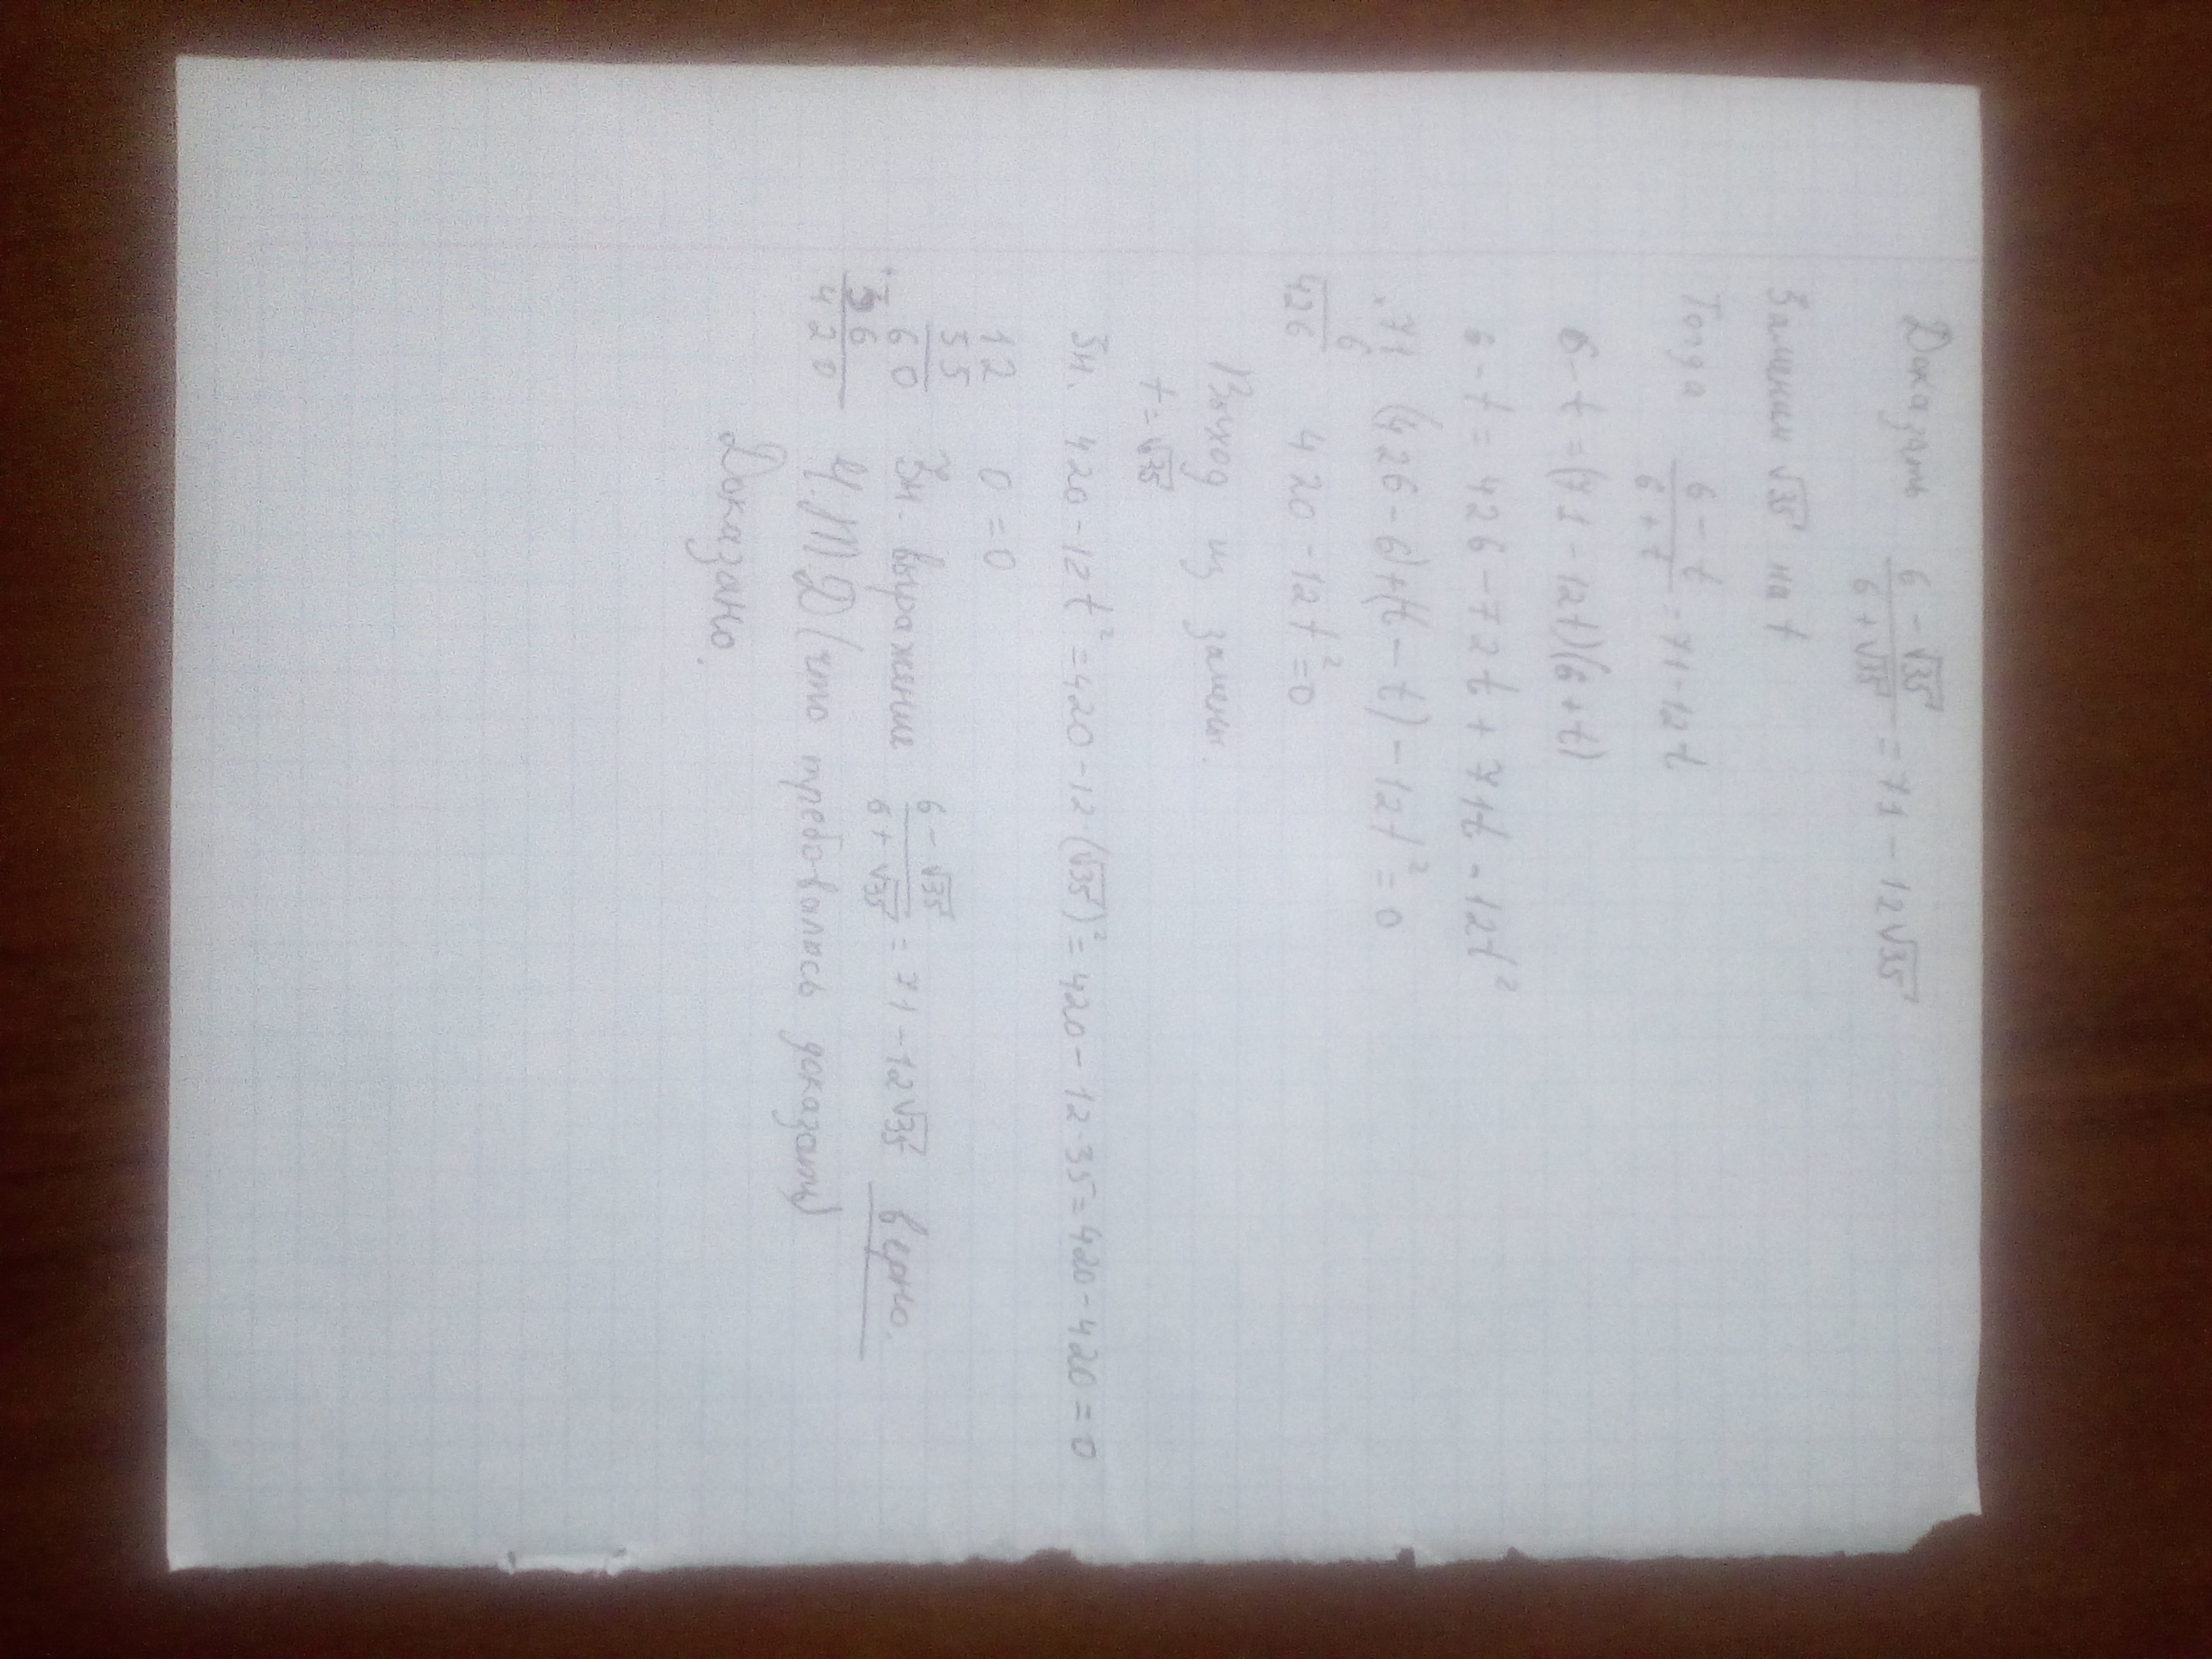 Доказать (6 - √35)/(6 + √35) = 71 - 12√35
Заменим √35 на t
Тогда (6 - t)/(6 + t) = 71 - 12t
6 - t = (71 - 12t)(6 + t)
6 - t = 426 - 72t + 71t - 12t²
71
6
426
(426 - 6) + (t - t) - 12t² = 0
420 - 12t² = 0
Выход из замены.
t = √35
Зн. 420 - 12t² = 420 - 12·(√35)² = 420 - 12·35 = 420 - 420 = 0
0 = 0
12
35
60
36
420
Зн. выражение (6 - √35)/(6 + √35) = 71 - 12√35 верно.
ЧМД (что требовалось доказать)
Доказано.